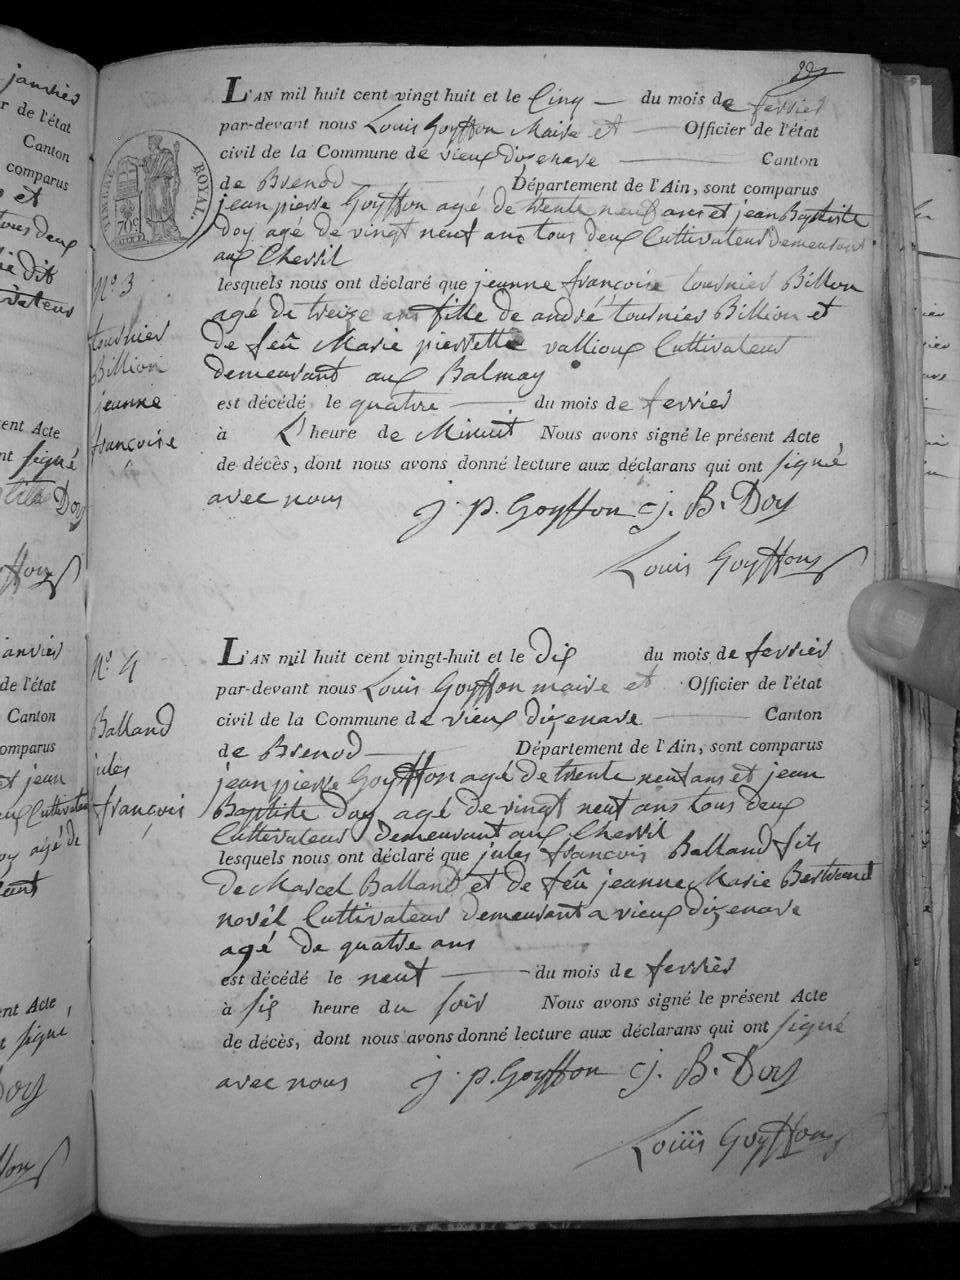 L'AN mil huit cent vingt huit et le Cinq du mois de fevrier
par-devant nous Louis Goyffon Maire et Officier de l'état
civil de la Commune de vieux dizenave Canton
de Brenod Département de l'Ain, sont comparus
jean pierre Goyffon agé de trente neuf ans et jean Baptiste
Doy agé de vingt neuf ans tous deux Cultivateurs demeurant
aux Chevril
TIMBRE ROYAL
70c
N° 3
tournier
Billion
jeanne
françoise
lesquels nous ont déclaré que jeanne françoise tournier Billion
agé de treize ans fille de andré tournier Billion et
de feu Marie pierrette vallioux Cultivateur
demeurant aux Balmay
est décédé le quatre du mois de fevrier
à L'heure de Minuit Nous avons signé le présent Acte,
de décès, dont nous avons donné lecture aux déclarans qui ont signé
avec nous j. p. Goyffon j. B. Doy
Louis Goyffon
N° 4
Balland
jules
françois
L'AN mil huit cent vingt-huit et le dix du mois de fevrier
par-devant nous Louis Goyffon maire et Officier de l'état
civil de la Commune de vieux dizenave Canton
de Brenod Département de l'Ain, sont comparus
jean pierre Goyffon agé de trente neuf ans et jean
Baptiste Doy agé de vingt neuf ans tous deux
Cultivateurs demeurant aux Chevril
lesquels nous ont déclaré que jules françois Balland fils
de Marcel Balland et de feu jeanne Marie Bertrand
novél Cultivateur demeurant a vieux dizenave
agé de quatre ans
est décédé le neuf du mois de fevrier
à six heure du soir Nous avons signé le présent Acte
de décès, dont nous avons donné lecture aux déclarans qui ont signé
avec nous j. p. Goyffon j. B. Doy
Louis Goyffon